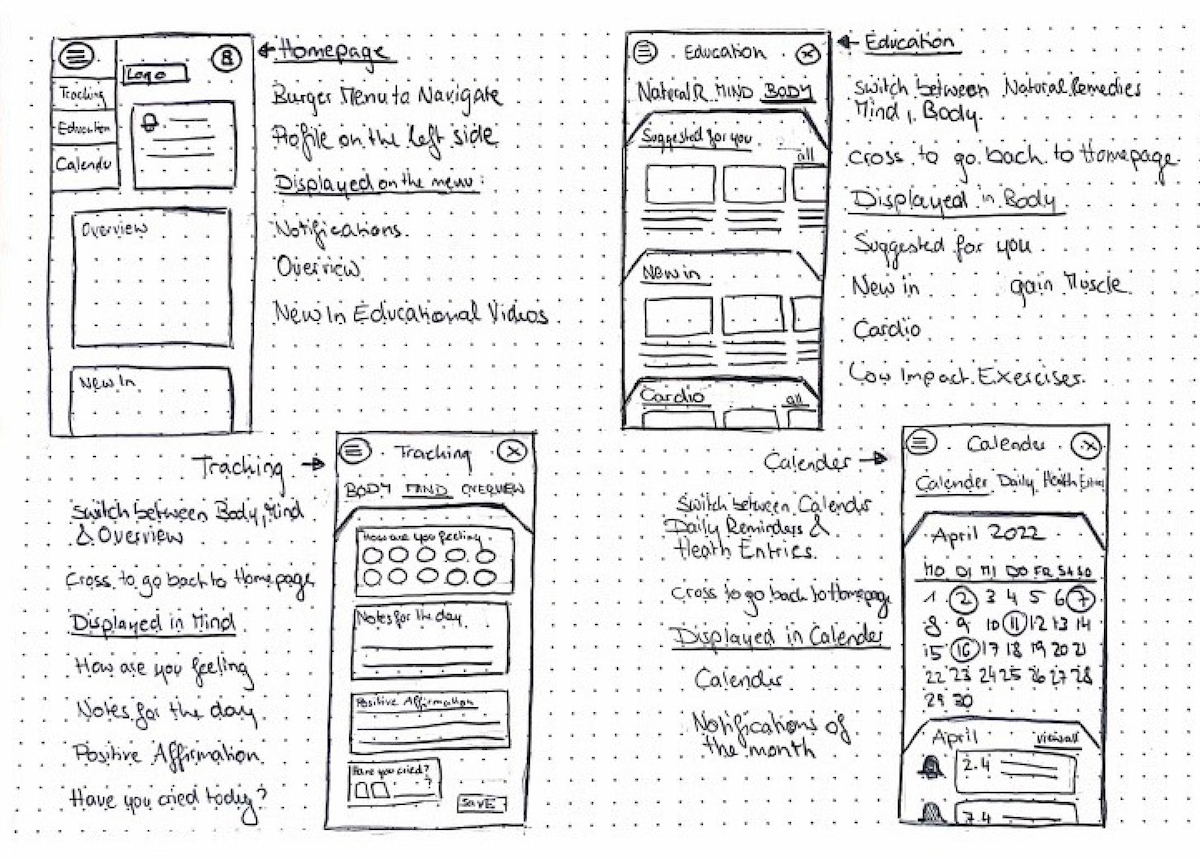 Homepage
Logo
Tracking
Education
Calendu
Overview
New In
Burger Menu to Navigate
Profile on the left side
Displayed on the menu:
Notifications
Overview
New In Educational Videos
Education
Natural R. MIND BODY
Suggested for you
all
New in
Cardio
all
Education
Switch between Natural Remedies
Mind, Body.
cross to go back to Homepage
Displayed in Body
Suggested for you
New in gain Muscle
Cardio
Low Impact Exercises.
Tracking
Switch between Body, Mind
& Overview
Cross to go back to Homepage
Displayed in Mind
How are you feeling
Notes for the day
Positive Affirmation
Have you cried today?
Tracking
BODY MIND OVERVIEW
How are you feeling
Notes for the day
Positive Affirmation
Have you cried?
?
SAVE
Calender
Switch between Calender
Daily Reminders &
Heath Entries.
cross to go back to Homepage
Displayed in Calender
Calender
Notifications of
the month
Calender
Calender Daily Health Entries
April 2022
MO DI MI DO FR SA SO
1 2 3 4 5 6 7
8 9 10 11 12 13 14
15 16 17 18 19 20 21
22 23 24 25 26 27 28
29 30
April
view all
2.4
7.4